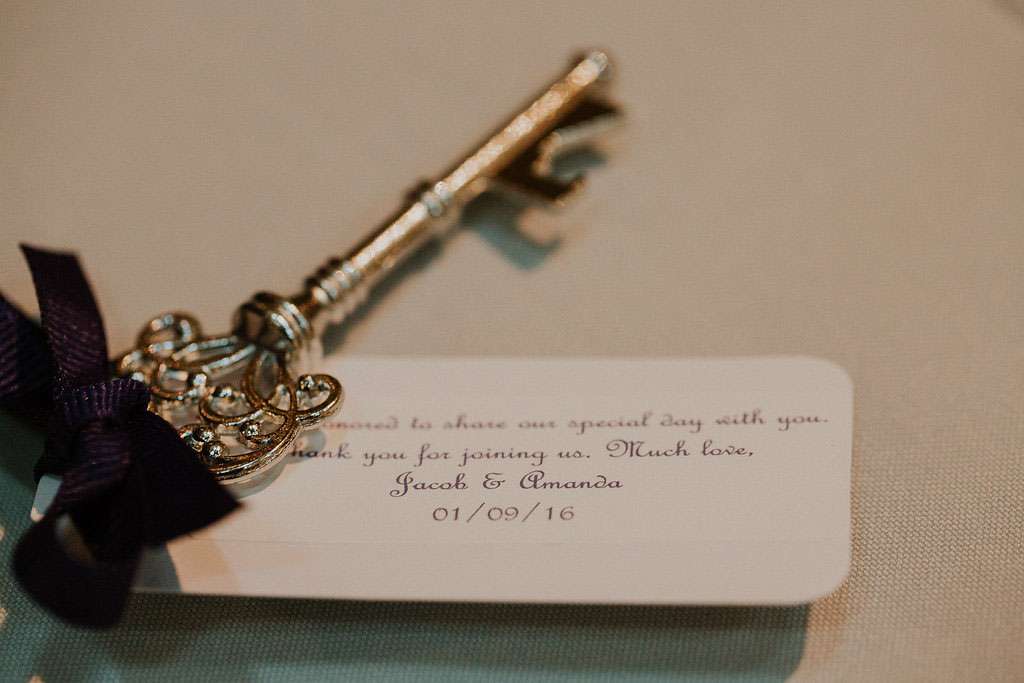 onored to share our special day with you.
hank you for joining us. Much love,
Jacob & Amanda
01/09/16